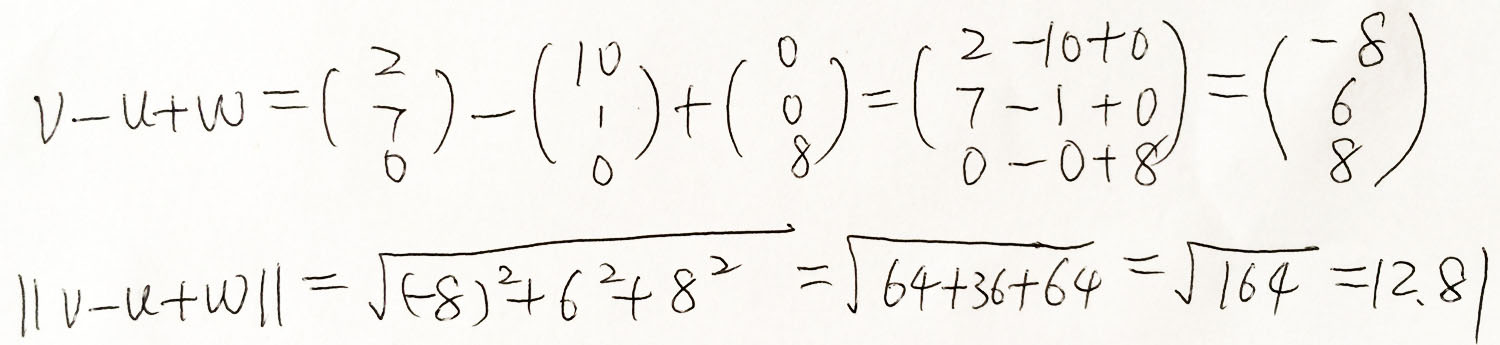 v-u+w = (2 7 0) - (10 1 0) + (0 0 8) = (2-10+0 7-1+0 0-0+8) = (-8 6 8)
||v-u+w|| = √((-8)²+6²+8²) = √(64+36+64) = √164 = 12.81